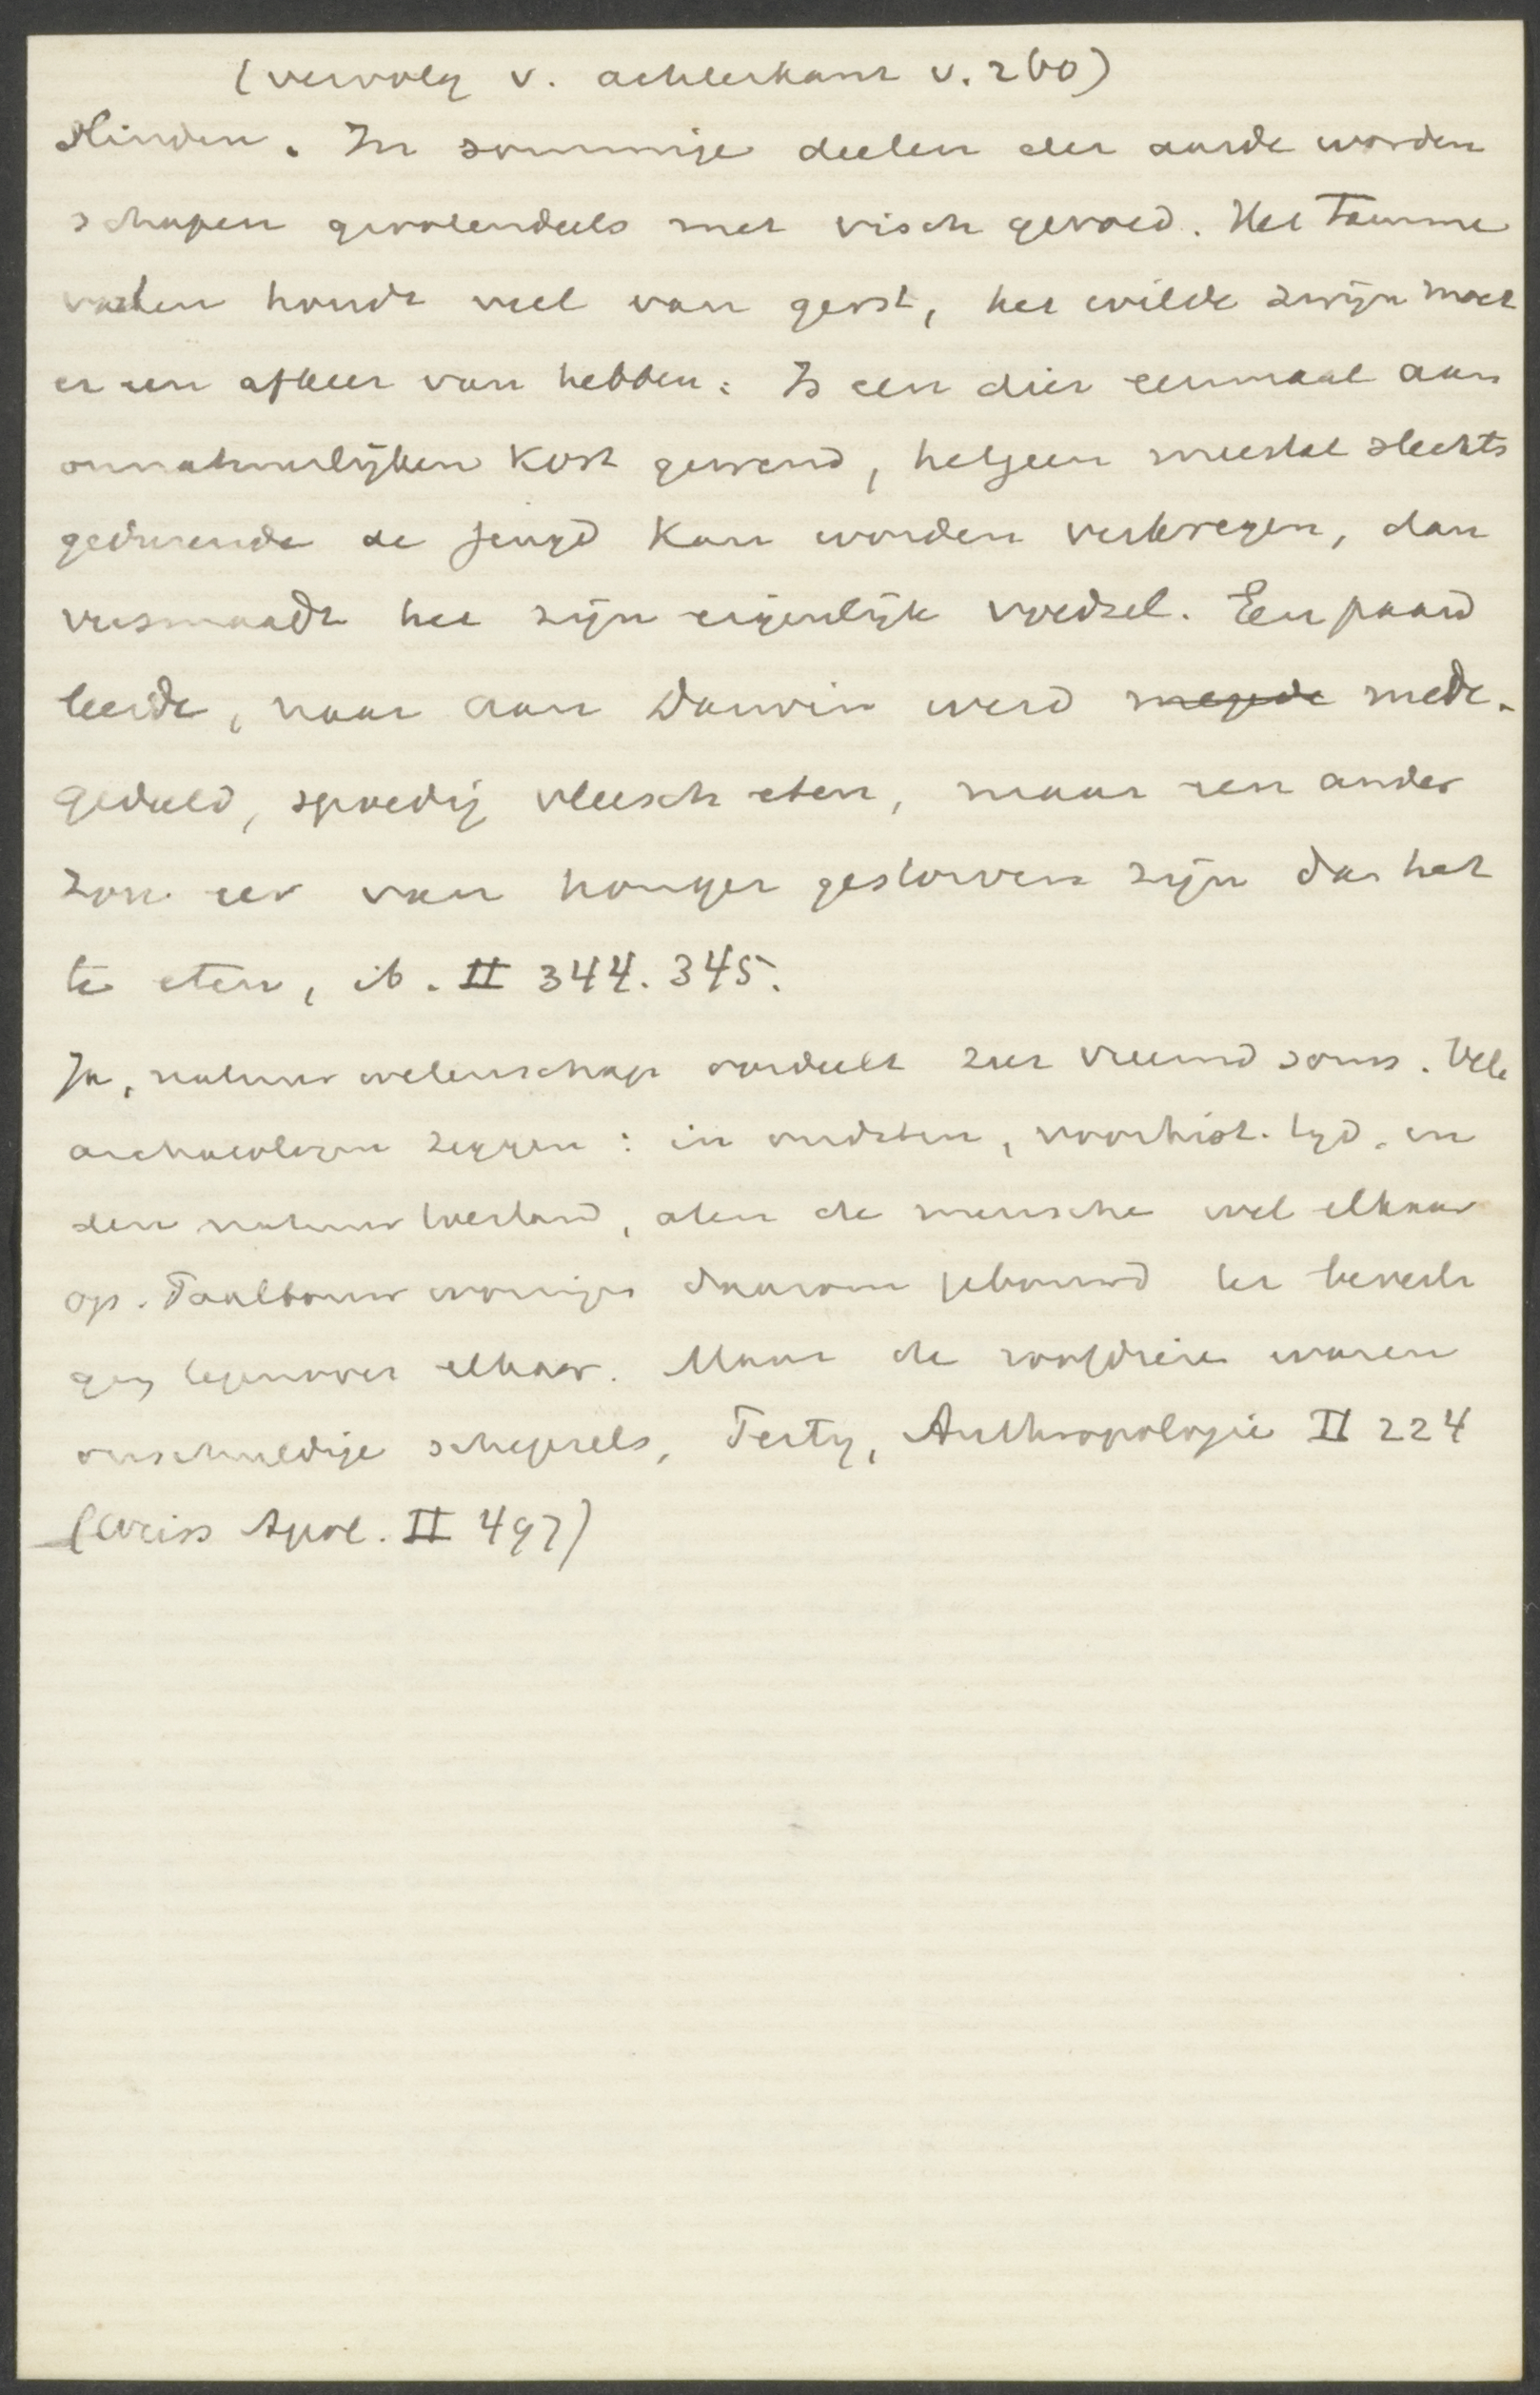 (vervolg v. achterkant v. 260)
Hinden. In sommige deelen der aarde worden
schapen grootendeels met visch gevoed. Het tamme
varken houdt veel van gerst, het wilde zwijn moet
er een afkeer van hebben. Is een dier eenmaal aan
onnatuurlijken kost gewend, hetgeen meestal slechts
gedurende de jeugd kan worden verkregen, dan
versmaadt het zijn eigenlijk voedsel. Een paard
leerde, naar aan Darwin werd megede mede-
gedeeld, spoedig vleesch eten, maar een ander
zou eer van honger gestorven zijn dan het
te eten, ib. II 344. 345.
Ja, natuurwetenschap oordeelt zeer vreemd soms. Vele
archaeologen zeggen: in oudsten, voorhist. tyd, in
den natuurtoestand, aten de mensche wel elkaar
op. Paalbouw woningen daarom gebouwd ter beveili
ging tegenover elkaar. Maar de roofdiere waren
onschuldige schepsels, Perty, Anthropologie II 224
(Weiss Apol. II 497)